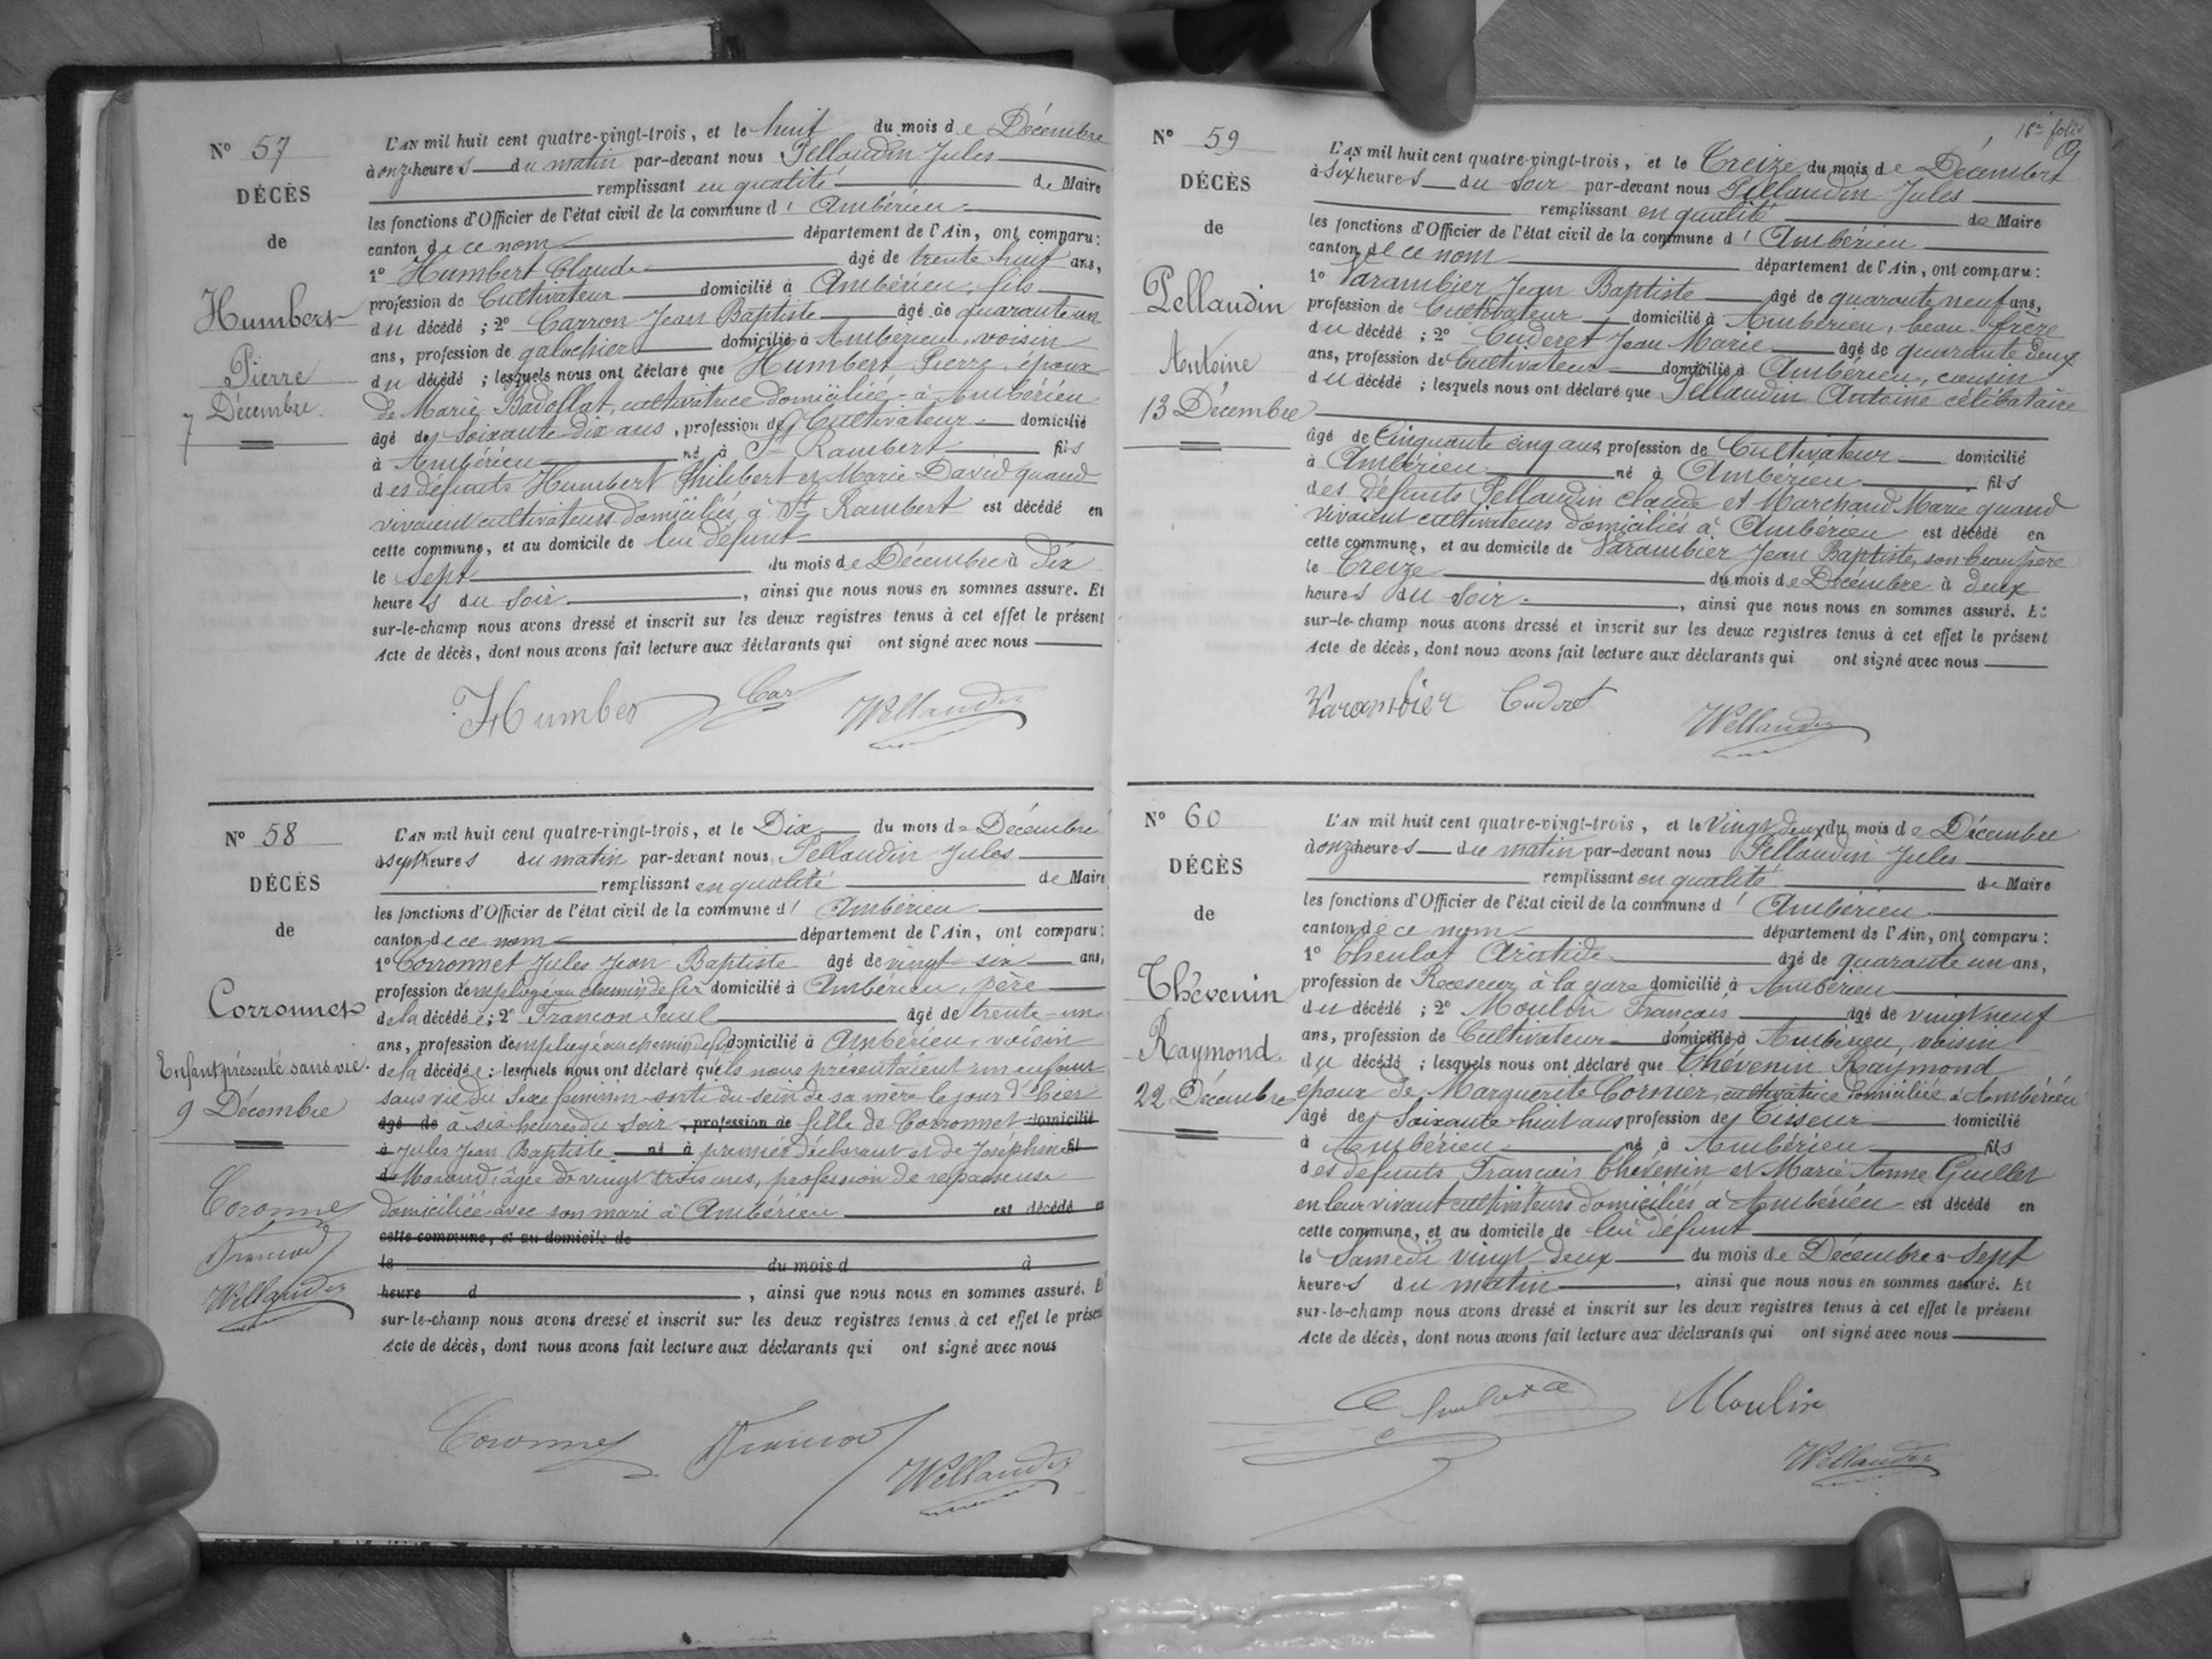 N° 57
DÉCÈS
de
Humbert
Pierre
7 Décembre.
L'AN mil huit cent quatre-vingt-trois, et le huit du mois de Décembre
à onze heures du matin par-devant nous Pellaudin Jules
remplissant en qualité de Maire
les fonctions d'Officier de l'état civil de la commune d' Ambérieu
canton de ce nom département de l'Ain, ont comparu :
1° Humbert Claude âgé de trente huit ans,
profession de Cultivateur domicilié à Ambérieu, fils
du décédé ; 2° Carron Jean Baptiste âgé de quarante un
ans, profession de galochier domicilié à Ambérieu, voisin
du décédé ; lesquels nous ont déclaré que Humbert Pierre, époux
de Marie Badollat, cultivatrice domiciliée à Ambérieu
âgé de Soixante Dix ans, profession de Cultivateur domicilié
à Ambérieu né à St Rambert fils
des défunts Humbert Philibert et Marie David quand
vivaient cultivateurs domiciliés à St Rambert est décédé en
cette commune, et au domicile de lui défunt
le Sept du mois de Décembre à Dix
heures du Soir, ainsi que nous nous en sommes assuré. Et
sur-le-champ nous avons dressé et inscrit sur les deux registres tenus à cet effet le présent
Acte de décès, dont nous avons fait lecture aux déclarants qui ont signé avec nous
Humber Car JPellaudin
N° 58
DÉCÈS
de
Corronnet
Enfant présenté sans vie.
9 Décembre
L'AN mil huit cent quatre-vingt-trois, et le Dix du mois de Décembre
à sept heures du matin par-devant nous Pellaudin Jules
remplissant en qualité de Maire
les fonctions d'Officier de l'état civil de la commune d' Ambérieu
canton de ce nom département de l'Ain, ont comparu :
1° Corronnet Jules Jean Baptiste âgé de vingt six ans,
profession d'employé au chemin de fer domicilié à Ambérieu, père
de la décédée ; 2° Françon âgé de trente-un
ans, profession d'employé au chemin de fer domicilié à Ambérieu, voisin
de la décédée ; lesquels nous ont déclaré qu'ils nous présentaient un enfant
sans vie du Sexe féminin sorti du sein de sa mère le jour d'hier
âgé de à six heures du Soir, profession de fille de Corronnet domicilié
à Jules Jean Baptiste né à premier déclarant et de Joséphine fil
d Morand, âgée de vingt trois ans, profession de repasseuse
domiciliée avec son mari à Ambérieu est décédé en
cette commune, et au domicile de
le du mois d à
heure d, ainsi que nous nous en sommes assuré. E
sur-le-champ nous avons dressé et inscrit sur les deux registres tenus à cet effet le présen
Acte de décès, dont nous avons fait lecture aux déclarants qui ont signé avec nous
Coronne
JPellaudin
Coronne JPellaudin
16e folio
N° 59
DÉCÈS
de
Pellaudin
Antoine
13 Décembre
L'AN mil huit cent quatre-vingt-trois, et le Treize du mois de Décembre
à Six heures du Soir par-devant nous Pellaudin Jules
remplissant en qualité de Maire
les fonctions d'Officier de l'état civil de la commune d' Ambérieu
canton de ce nom département de l'Ain, ont comparu :
1° Varambier Jean Baptiste âgé de quarante neuf ans,
profession de Cultivateur domicilié à Ambérieu, beau-frère
du décédé ; 2° Cuderet Jean Marie âgé de quarante deux
ans, profession de Cultivateur domicilié à Ambérieu, cousin
du décédé ; lesquels nous ont déclaré que Pellaudin Antoine célibataire
âgé de Cinquante cinq ans, profession de Cultivateur domicilié
à Ambérieu né à Ambérieu fils
des défunts Pellaudin Claude et Marchand Marie quand
vivaient cultivateurs domiciliés à Ambérieu est décédé en
cette commune, et au domicile de Varambier Jean Baptiste, son beau frère
le Treize du mois de Décembre à deux
heures du Soir, ainsi que nous nous en sommes assuré. Et
sur-le-champ nous avons dressé et inscrit sur les deux registres tenus à cet effet le présent
Acte de décès, dont nous avons fait lecture aux déclarants qui ont signé avec nous
Varambier Cudret JPellaudin
N° 60
DÉCÈS
de
Thévenin
Raymond.
22 Décembre
L'AN mil huit cent quatre-vingt-trois, et le Vingt deux du mois de Décembre
à onze heures du matin par-devant nous Pellaudin Jules
remplissant en qualité de Maire
les fonctions d'Officier de l'état civil de la commune d' Ambérieu
canton de ce nom département de l'Ain, ont comparu :
1° Cheulot Aristide âgé de quarante un ans,
profession de Receveur à la gare domicilié à Ambérieu
du décédé ; 2° Moulin François âgé de vingt neuf
ans, profession de Cultivateur domicilié à Ambérieu, voisin
du décédé ; lesquels nous ont déclaré que Thévenin Raymond
époux de Marguerite Cornier, cultivatrice domiciliée à Ambérieu
âgé de Soixante huit ans profession de Tisseur domicilié
à Ambérieu né à Ambérieu fils
des défunts François Thévenin et Marie Anne Guillet
en leur vivant cultivateurs domiciliés à Ambérieu est décédé en
cette commune, et au domicile de lui défunt
le Samedi vingt-deux du mois de Décembre à Sept
heures du matin, ainsi que nous nous en sommes assuré. Et
sur-le-champ nous avons dressé et inscrit sur les deux registres tenus à cet effet le présent
Acte de décès, dont nous avons fait lecture aux déclarants qui ont signé avec nous
Moulin
JPellaudin